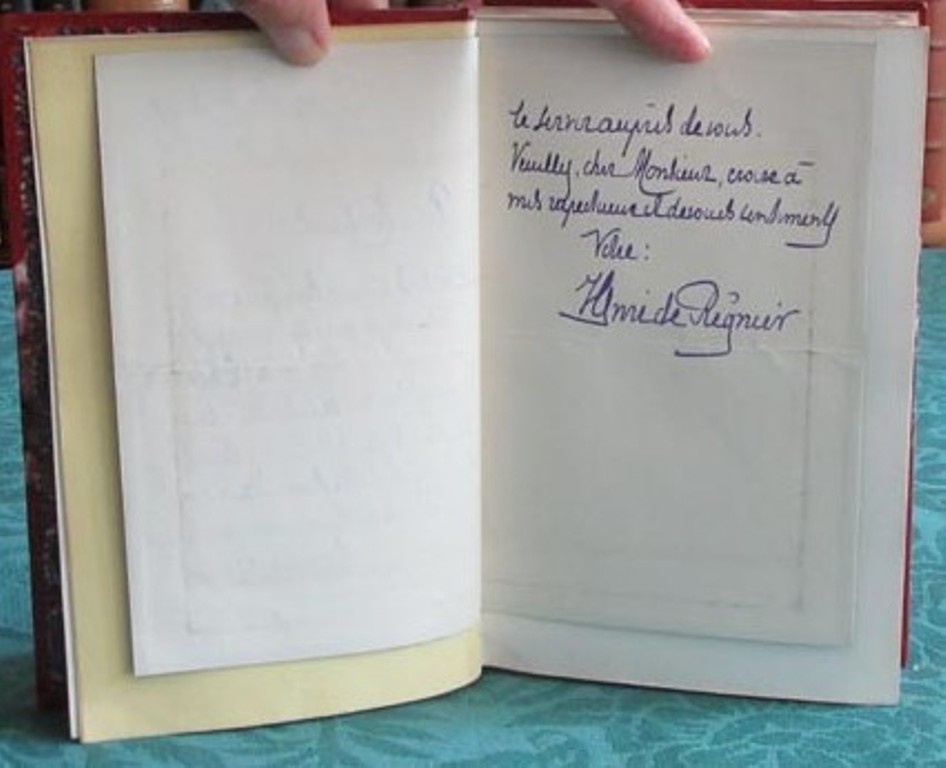 le servir auprès de vous.
Veuillez, cher Monsieur, croire à
mes respectueux et dévoués sentiments
Votre :
Henri de Régnier